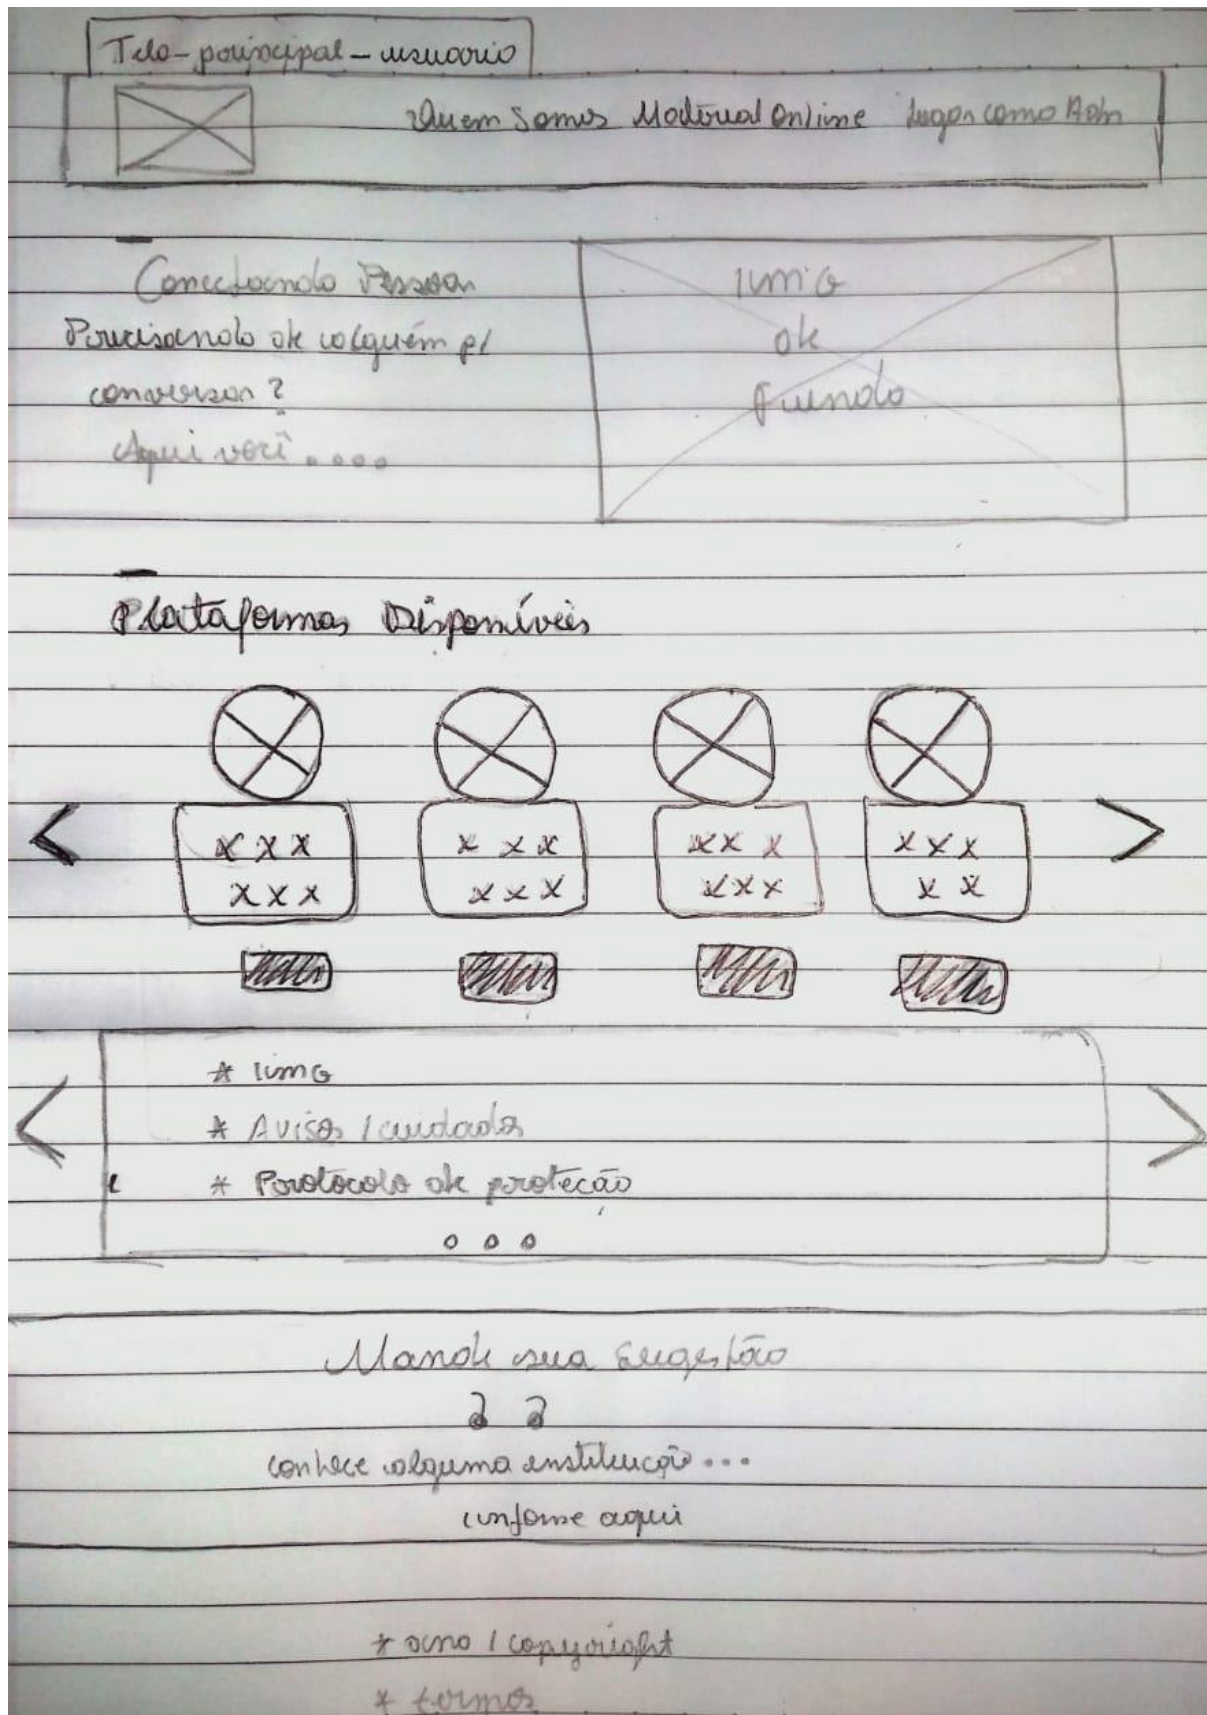 Tela-principal-usuario
Quem Somos Material Online Logar como Adm
Conectando Pessoas
Precisando de alguém p/
conversar?
Aqui você....
img
de
fundo
Plataformas Disponíveis
< x x x x x x x x x x x x >
x x x x x x x x x x x
* img
< * Avisos / cuidados >
* Protocolo de proteção
o o o
Mande sua Sugestão
conhece alguma instituição...
informe aqui
* ano / copyright
* termos